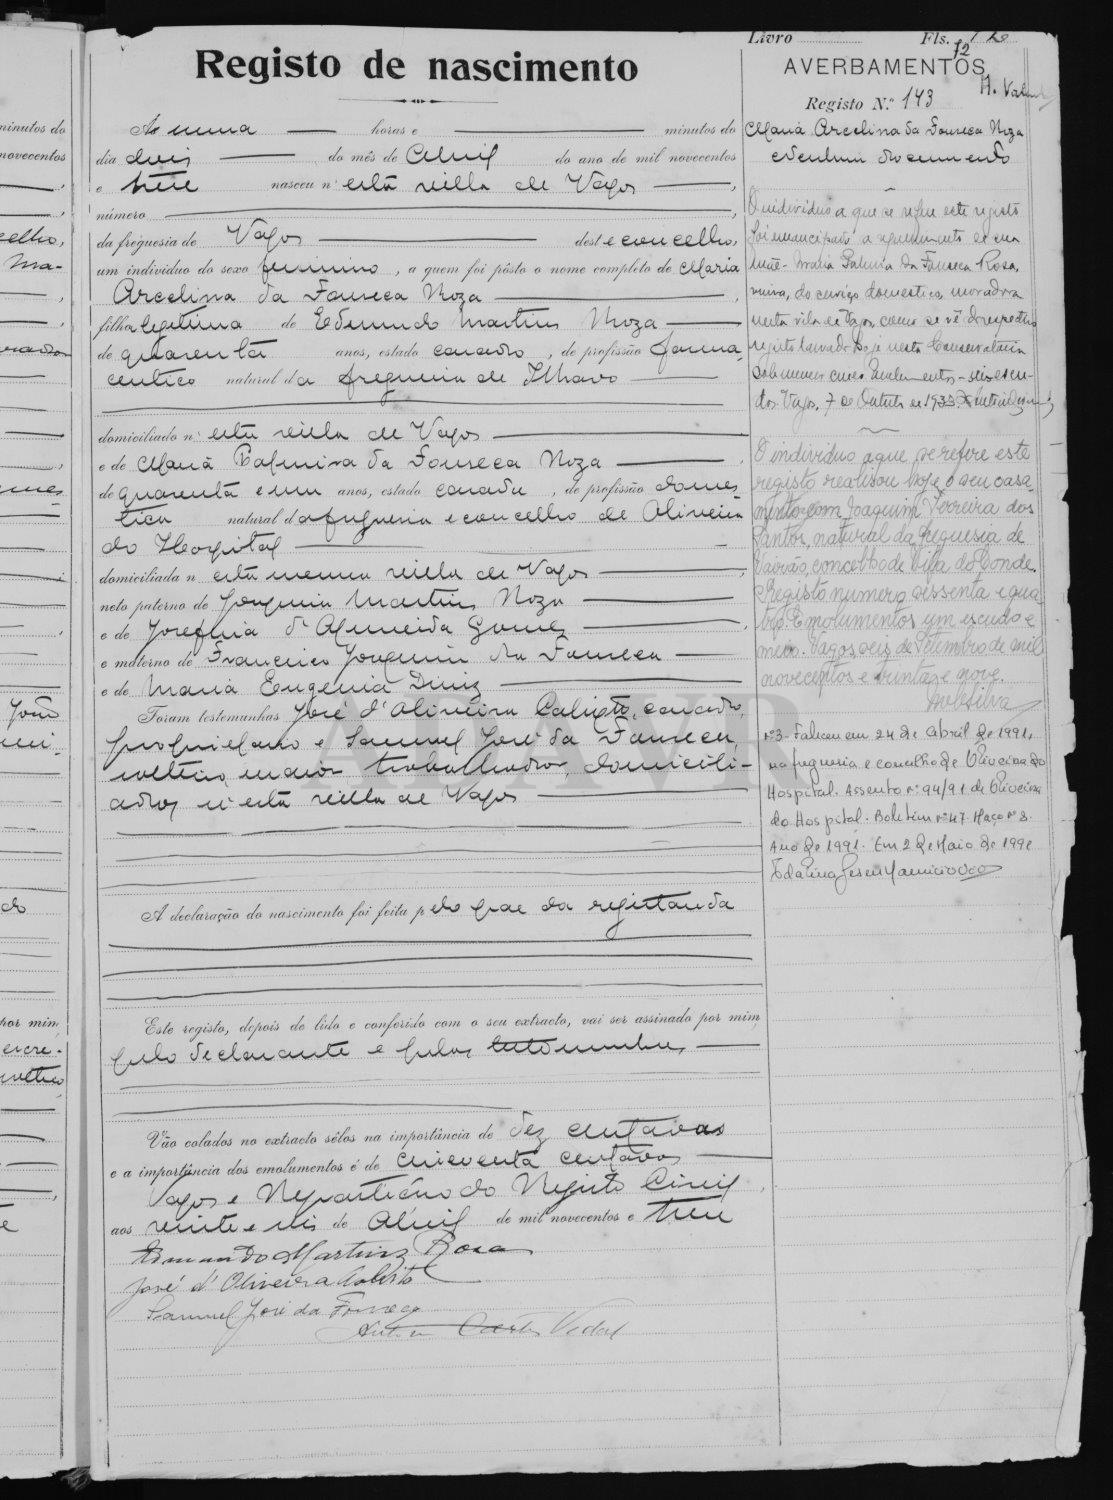 Registo de nascimento
Ás uma horas e minutos do
dia dois do mês de Abril do ano de mil novecentos
e treze nasceu n' esta villa de Vagos,
número
da freguesia de Vagos deste concelho,
um individuo do sexo feminino, a quem foi pôsto o nome completo de Maria
Arcelina da Fonseca Roza,
filha legitima de Edmundo Martins Roza
de quarenta anos, estado casado, de profissão farma-
ceutico natural da freguesia de Ilhavo
domiciliado n' esta villa de Vagos
e de Maria Palmira da Fonseca Roza,
de quarenta e um anos, estado casada, de profissão domes-
tica natural da freguesia e concelho de Oliveira
do Hospital
domiciliada n' esta mesma villa de Vagos,
neto paterno de Joaquim Martins Roza
e de Josefina d'Almeida Gomes,
e materno de Francisco Joaquim da Fonseca
e de Maria Eugenia Diniz
Foram testemunhas José d'Oliveira Calisto, casado,
proprietario e Samuel José da Fonseca,
solteiro, maior trabalhador, domicili-
ados n'esta villa de Vagos
A declaração do nascimento foi feita pelo pae da registanda
Este registo, depois de lido e conferido com o seu extracto, vai ser assinado por mim,
pelo declarante e pelas testemunhas
Vão colados no extracto sêlos na importância de dez centavos
e a importância dos emolumentos é de cincoenta centavos
Vagos e Repartição do Registo Civil,
aos vinte e seis de Abril de mil novecentos e treze
Edmundo Martins Rosa
José d'Oliveira Calisto
Samuel José da Fonseca
Livro Fls. 72
AVERBAMENTOS
Registo N.º 143
Maria Arcelina da Fonseca Roza
O individuo a que se refere este registo
foi emancipado a requerimento de sua
mãe - Maria Palmira da Fonseca Rosa,
viuva, do serviço domestico, moradora
nesta vila de Vagos, como se vê do respectivo
registo lavrado hoje nesta Conservatoria
sob numero cinco. Emolumentos - seis escu-
dos. Vagos, 7 de Outubro de 1933.
O individuo a que se refere este
registo realisou hoje o seu casa-
mento com Joaquim Ferreira dos
Santos, natural da freguesia de
Vairão, concelho de Vila do Conde.
Registo numero sessenta e qua-
tro. Emolumentos um escudo e
meio. Vagos, seis de Setembro de mil
novecentos e trinta e nove.
nº3 - Faleceu em 24 de Abril de 1991,
na freguesia e concelho de Oliveira do
Hospital. Assento nº 94/91 de Oliveira
do Hospital. Boletim nº 47 Maço nº 8.
Ano de 1991. Em 2 de Maio de 1991